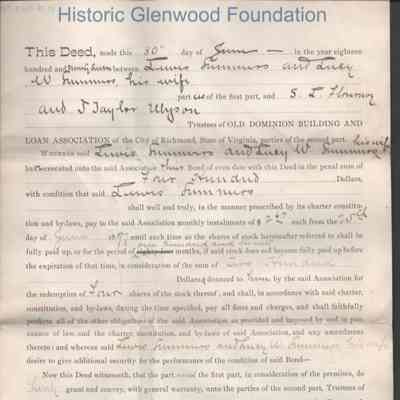 Historic Glenwood Foundation
This Deed, made this 30th day of June — in the year eighteen
hundred and between Lewis Summers and Lucy
W. Summers, his wife
part ies of the first part, and S. L.
and J Taylor Ellyson
Trustees of OLD DOMINION BUILDING AND
LOAN ASSOCIATION of the City of Richmond, State of Virginia, parties of the second part. his wife
WHEREAS said Lewis Summers and Lucy W. Summers
executed unto the said Association their Bond of even date with this Deed in the penal sum of
Four Hundred Dollars,
with condition that said Lewis Summers
shall well and truly, in the manner prescribed by its charter constitu-
tion and by-laws, pay to the said Association monthly instalments of $ each from the 25th
day of June 189 until such time as the shares of stock hereinafter referred to shall be
one hundred and
fully paid up, or for the period of months, if said stock does not become fully paid up before
the expiration of that time, in consideration of the sum of Two Hundred
Dollars advanced to by the said Association for
the redemption of Four shares of the stock thereof, and shall, in accordance with said charter,
constitution, and by-laws, during the time specified, pay all fines and charges, and shall faithfully
perform all of the other obligations of the said Association as provided and imposed by and in pur-
suance of law and the charter, constitution, and by-laws of said Association, and any amendments
thereto; and whereas said Lewis Summers and Lucy W. Summers his wife
desire to give additional security for the performance of the condition of said Bond—
Now this Deed witnesseth, that the part of the first part, in consideration of the premises, do
grant and convey, with general warranty, unto the parties of the second part, Trustees of